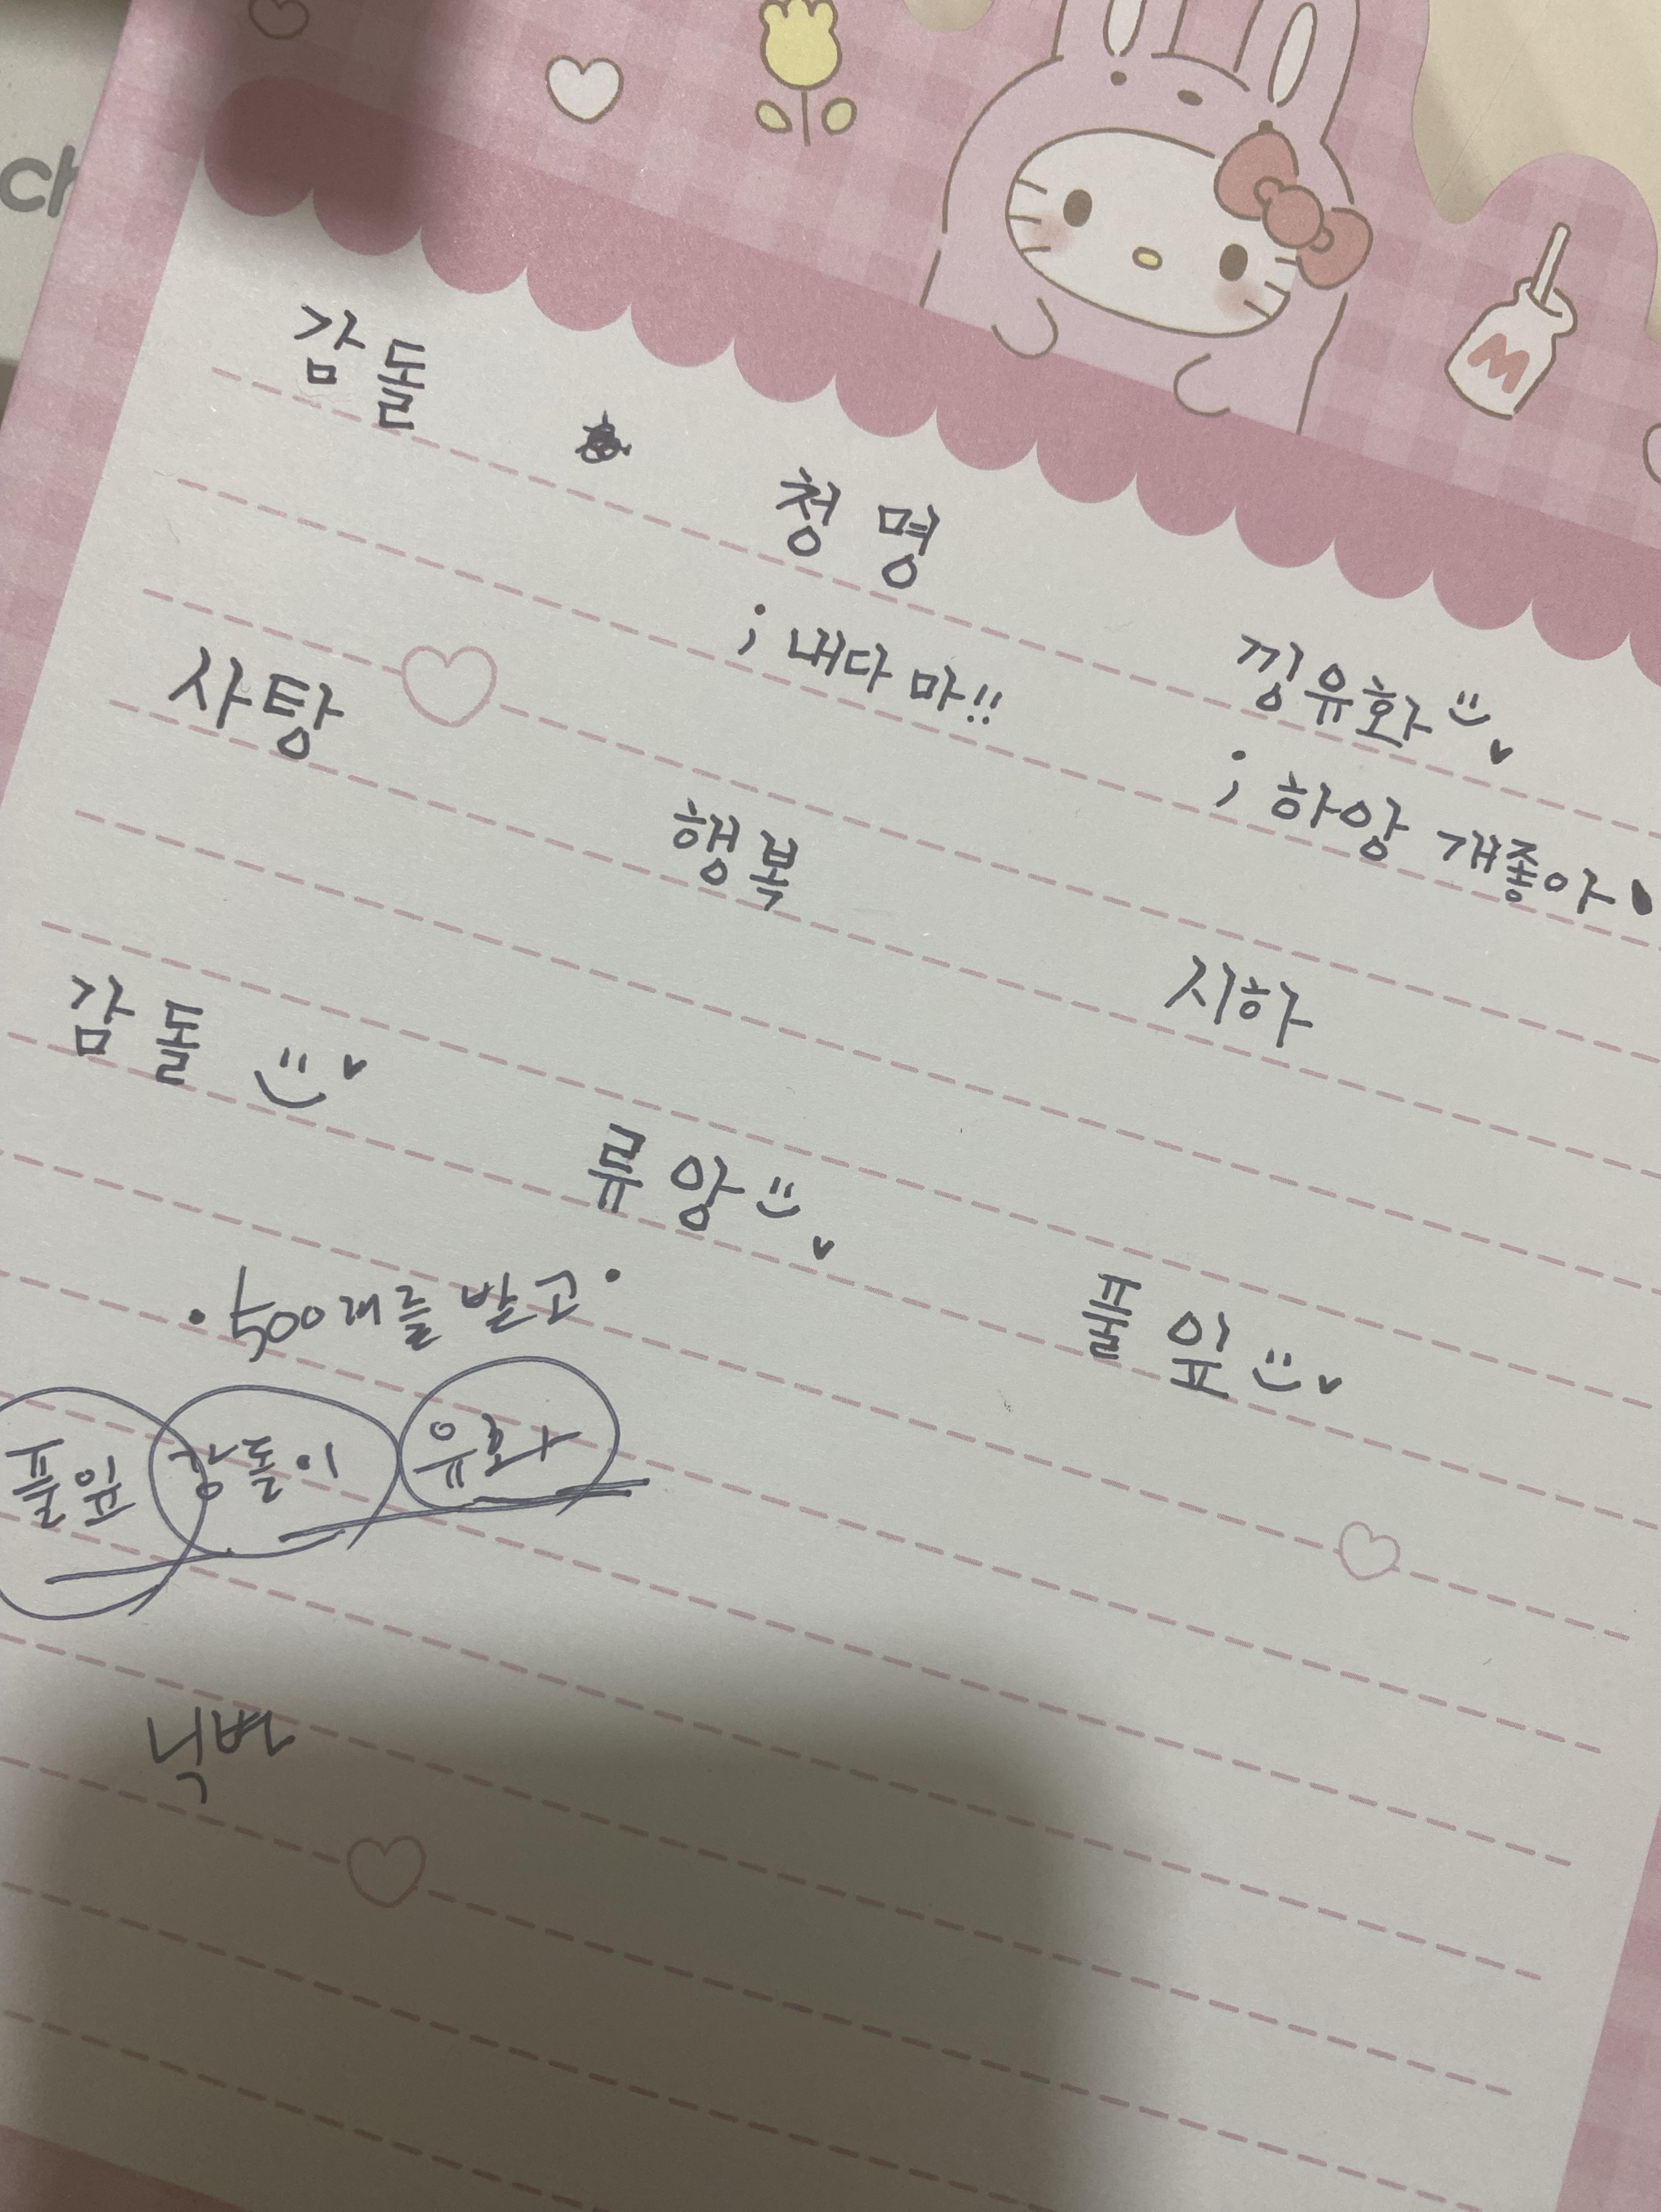 ch
M
감돌
청명
; 내다 마!!
낑유화
; 하앙 개좋아
사탕
행복
시하
감돌
류앙
풀잎
•500개를 발고•
풀잎 감돌이 유화
닉변